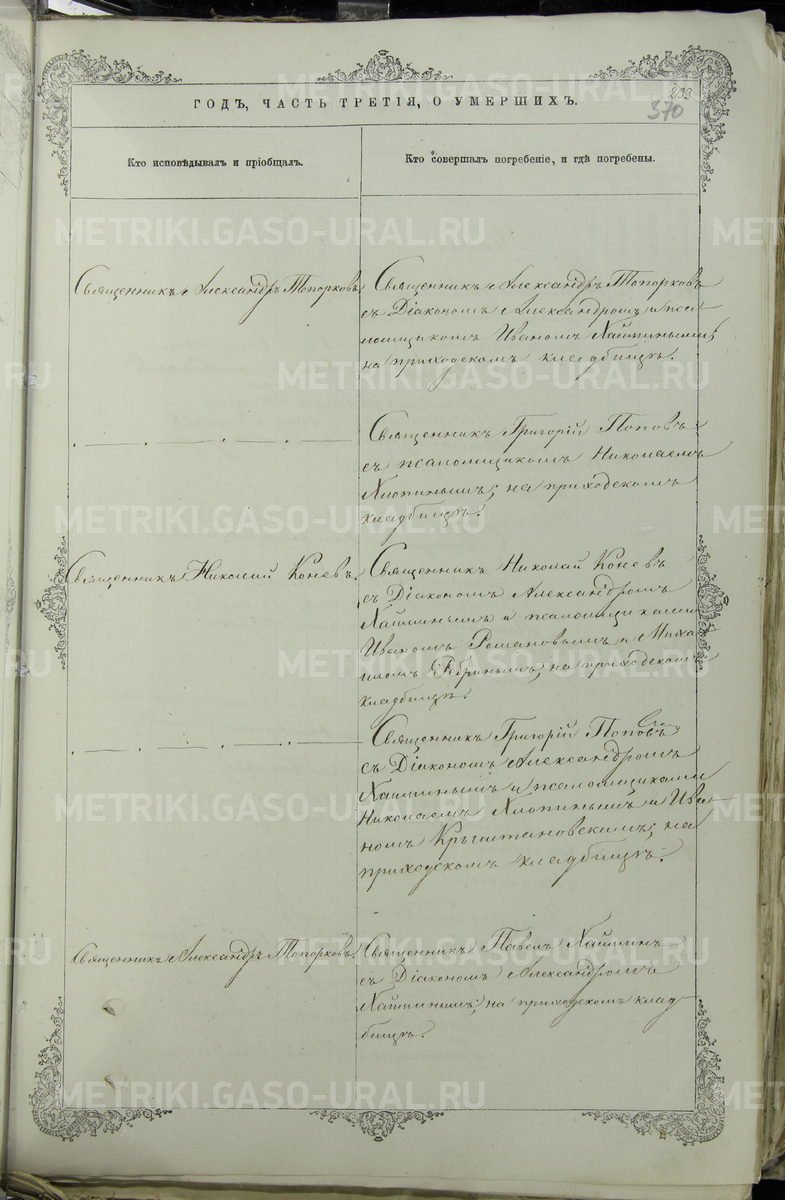 233
370
ГОДЪ, ЧАСТЬ ТРЕТІЯ, О УМЕРШИХЪ.
Кто исповѣдывалъ и пріобщалъ.
Кто совершалъ погребеніе, и гдѣ погребены.
Священникъ Александръ Топорковъ.
Священникъ Александръ Топорковъ
съ Діакономъ Александромъ и пса-
ломщикомъ Иваномъ
на приходскомъ кладбищѣ.
Священникъ Григорій Поповъ
съ псаломщикомъ Николаемъ
Хлопинымъ; на приходскомъ
кладбищѣ.
Священникъ Николай Коневъ.
Священникъ Николай Коневъ
съ Діакономъ Александромъ
и псаломщиками
Иваномъ Романовымъ и Миха-
иломъ на приходскомъ
кладбищѣ.
Священникъ Григорій Поповъ
съ Діакономъ Александромъ
и псаломщиками
Николаемъ Хлопинымъ и Ива-
номъ Крыштановскимъ; на
приходскомъ кладбищѣ.
Священникъ Александръ Топорковъ.
Священникъ Павелъ
съ Діакономъ Александромъ
на приходскомъ клад-
бищѣ.
METRIKI.GASO-URAL.RU